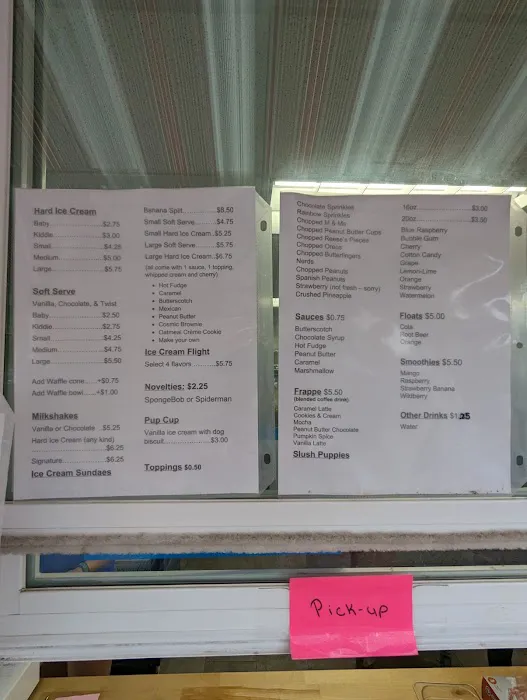 Hard Ice Cream
Baby $2.75
Kiddie $3.00
Small $4.25
Medium $5.00
Large $5.75
Soft Serve
Vanilla, Chocolate, & Twist
Baby $2.50
Kiddie $2.75
Small $4.25
Medium $4.75
Large $5.50
Add Waffle cone.....+$0.75
Add Waffle bowl....+$1.00
Milkshakes
Vanilla or Chocolate ..$5.25
Hard Ice Cream (any kind)
$6.25
Signature $6.25
Ice Cream Sundaes
Banana Split $8.50
Small Soft Serve $4.75
Small Hard Ice Cream..$5.25
Large Soft Serve $5.75
Large Hard Ice Cream..$6.75
(all come with 1 sauce, 1 topping,
whipped cream and cherry)
• Hot Fudge
• Caramel
• Butterscotch
• Mexican
• Peanut Butter
• Cosmic Brownie
• Oatmeal Creme Cookie
• Make your own
Ice Cream Flight
Select 4 flavors $5.75
Novelties: $2.25
SpongeBob or Spiderman
Pup Cup
Vanilla ice cream with dog
biscuit $3.00
Toppings $0.50
Chocolate Sprinkles
Rainbow Sprinkles
Chopped M & Ms
Chopped Peanut Butter Cups
Chopped Reese's Pieces
Chopped Oreos
Chopped Butterfingers
Nerds
Chopped Peanuts
Spanish Peanuts
Strawberry (not fresh – sorry)
Crushed Pineapple
Sauces $0.75
Butterscotch
Chocolate Syrup
Hot Fudge
Peanut Butter
Caramel
Marshmallow
Frappe $5.50
(blended coffee drink)
Caramel Latte
Cookies & Cream
Mocha
Peanut Butter Chocolate
Pumpkin Spice
Vanilla Latte
Slush Puppies
16oz $3.00
20oz $3.50
Blue Raspberry
Bubble Gum
Cherry
Cotton Candy
Grape
Lemon-Lime
Orange
Strawberry
Watermelon
Floats $5.00
Cola
Root Beer
Orange
Smoothies $5.50
Mango
Raspberry
Strawberry Banana
Wildberry
Other Drinks $1.25
Water
Pick-up